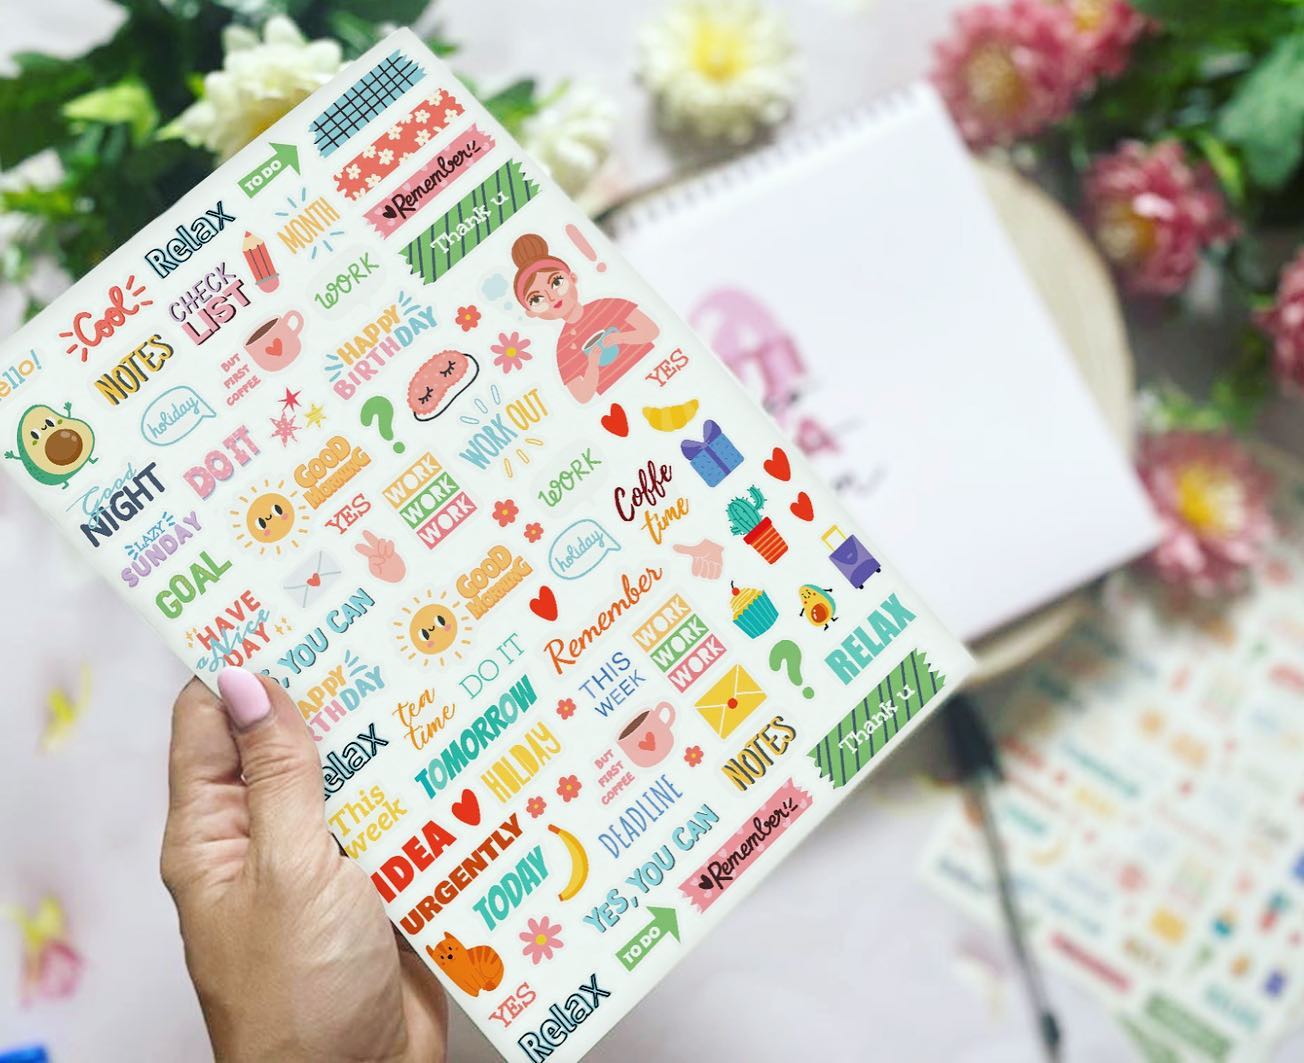 TO DO
Remember!
Thank u
Relax
MONTH
Cool
CHECK
LIST
WORK
ello!
NOTES
BUT
FIRST
COFFEE
HAPPY
BIRTHDAY
holiday
YES
Good
NIGHT
DO IT
GOOD
MORNING
WORK OUT
LAZY
SUNDAY
YES
WORK
WORK
WORK
WORK
Coffe
time
GOAL
holiday
HAVE
a Nice
DAY
S, YOU CAN
GOOD
MORNING
Remember
WORK
WORK
WORK
RELAX
APPY
RTHDAY
tea
time
DO IT
THIS
WEEK
Thank u
elax
TOMORROW
HOLIDAY
BUT
FIRST
COFFEE
NOTES
This
week
IDEA
URGENTLY
TODAY
DEADLINE
YES, YOU CAN
Remember!
TO DO
YES
Relax